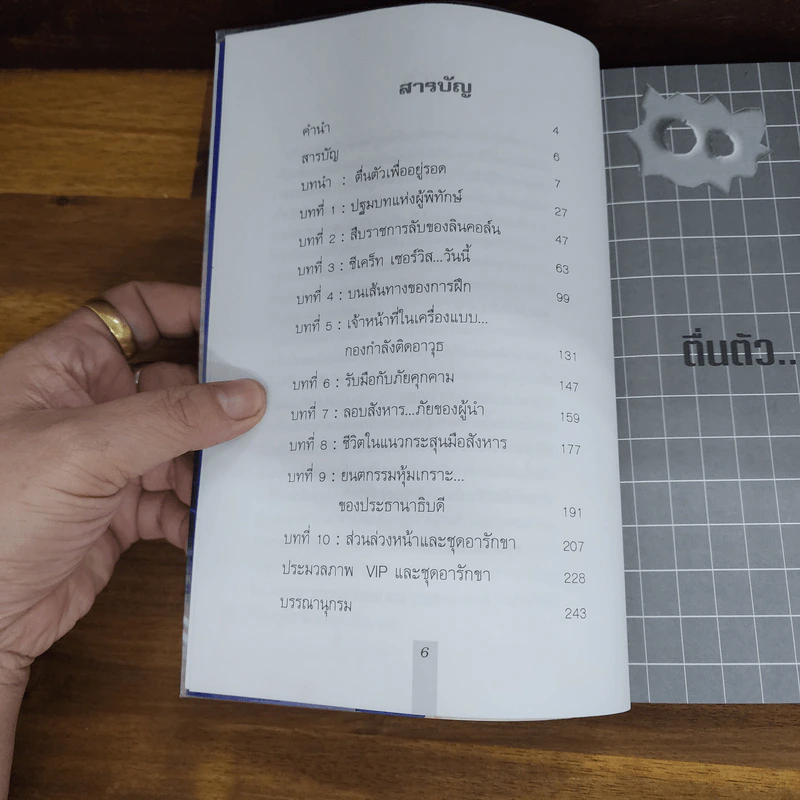 สารบัญ
คำนำ 4
สารบัญ 6
บทนำ : ตื่นตัวเพื่ออยู่รอด 7
บทที่ 1 : ปฐมบทแห่งผู้พิทักษ์ 27
บทที่ 2 : สืบราชการลับของลินคอล์น 47
บทที่ 3 : ซีเคร็ท เซอร์วิส...วันนี้ 63
บทที่ 4 : บนเส้นทางของการฝึก 99
บทที่ 5 : เจ้าหน้าที่ในเครื่องแบบ...
กองกำลังติดอาวุธ 131
บทที่ 6 : รับมือกับภัยคุกคาม 147
บทที่ 7 : ลอบสังหาร...ภัยของผู้นำ 159
บทที่ 8 : ชีวิตในแนวกระสุนมือสังหาร 177
บทที่ 9 : ยนตกรรมหุ้มเกราะ...
ของประธานาธิบดี 191
บทที่ 10 : ส่วนล่วงหน้าและชุดอารักขา 207
ประมวลภาพ VIP และชุดอารักขา 228
บรรณานุกรม 243
6
ตื่นตัว..